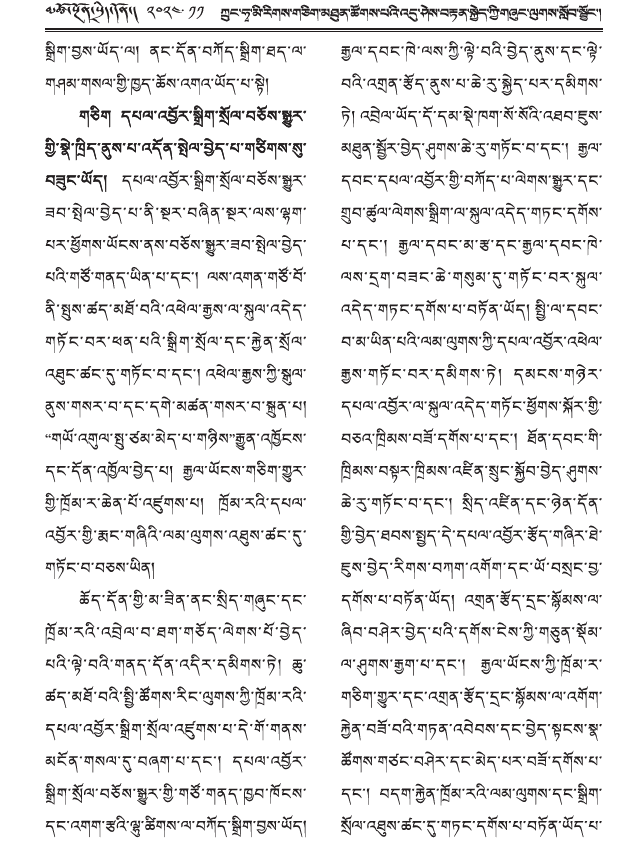 ༢༠༢༤.༡༡ ཀྲུང་ཧྭ་མི་རིགས་གཅིག་མཐུན་ཚོགས་པའི་འདུ་ཤེས་བརྟན་སྐྱེད་ཀྱི་གཞུང་ལུགས་སློབ་སྦྱོང་།
སྒྲིག་བྱས་ཡོད་ལ། ནང་དོན་བཀོད་སྒྲིག་ཐད་ལ་
གཤམ་གསལ་གྱི་ཁྱད་ཆོས་འགའ་ཡོད་པ་སྟེ།
གཅིག དཔལ་འབྱོར་སྒྲིག་སྲོལ་བཅོས་སྒྱུར་
གྱི་སྣེ་ཁྲིད་ནུས་པ་འདོན་སྤེལ་བྱེད་པ་གཙིགས་སུ་
བཟུང་ཡོད། དཔལ་འབྱོར་སྒྲིག་སྲོལ་བཅོས་སྒྱུར་
ཟབ་སྤེལ་བྱེད་པ་ནི་སྔར་བཞིན་སྔར་ལས་ལྷག་
པར་ཕྱོགས་ཡོངས་ནས་བཅོས་སྒྱུར་ཟབ་སྤེལ་བྱེད་
པའི་གཙོ་གནད་ཡིན་པ་དང་། ལས་འགན་གཙོ་བོ་
ནི་སྤུས་ཚད་མཐོ་བའི་འཕེལ་རྒྱས་ལ་སྐུལ་འདེད་
གཏོང་བར་ཕན་པའི་སྒྲིག་སྲོལ་དང་རྐྱེན་སྲོལ་
འཐུང་ཚང་དུ་གཏོང་བ་དང་། འཕེལ་རྒྱས་ཀྱི་སྒུལ་
ནུས་གསར་བ་དང་དགེ་མཚན་གསར་བ་སྐྲུན་པ།
“གཡོ་འགུལ་སྤུ་ཙམ་མེད་པ་གཉིས”རྒྱུན་འཁྱོངས་
དང་དོན་འཁྱོལ་བྱེད་པ། རྒྱལ་ཡོངས་གཅིག་གྱུར་
གྱི་ཁྲོམ་ར་ཆེན་པོ་འཛུགས་པ། ཁྲོམ་རའི་དཔལ་
འབྱོར་གྱི་རྨང་གཞིའི་ལམ་ལུགས་འཐུས་ཚང་དུ་
གཏོང་བ་བཅས་ཡིན།
ཚོད་དོན་གྱི་མ་ཟིན་ནང་སྲིད་གཞུང་དང་
ཁྲོམ་རའི་འབྲེལ་བ་ཐག་གཅོད་ལེགས་པོ་བྱེད་
པའི་ལྟེ་བའི་གནད་དོན་འདིར་དམིགས་ཏེ། ཆུ་
ཚད་མཐོ་བའི་སྤྱི་ཚོགས་རིང་ལུགས་ཀྱི་ཁྲོམ་རའི་
དཔལ་འབྱོར་སྒྲིག་སྲོལ་འཛུགས་པ་དེ་གོ་གནས་
མངོན་གསལ་དུ་བཞག་པ་དང་། དཔལ་འབྱོར་
སྒྲིག་སྲོལ་བཅོས་སྒྱུར་གྱི་གཙོ་གནད་ཁྱབ་ཁོངས་
དང་འགག་རྩའི་ལྷུ་ཚིགས་ལ་བཀོད་སྒྲིག་བྱས་ཡོད།
རྒྱལ་དབང་ཁེ་ལས་ཀྱི་ལྟེ་བའི་བྱེད་ནུས་དང་ལྟེ་
བའི་འགྲན་རྩོད་ནུས་པ་ཆེ་རུ་སྐྱེད་པར་དམིགས་
ཏེ། འབྲེལ་ཡོད་དོ་དམ་སྡེ་ཁག་སོ་སོའི་འཐབ་ཇུས་
མཐུན་སྦྱོར་བྱེད་ཤུགས་ཆེ་རུ་གཏོང་བ་དང་། རྒྱལ་
དབང་དཔལ་འབྱོར་གྱི་བཀོད་པ་ལེགས་སྒྱུར་དང་
གྲུབ་ཚུལ་ལེགས་སྒྲིག་ལ་སྐུལ་འདེད་གཏང་དགོས་
པ་དང་། རྒྱལ་དབང་མ་རྩ་དང་རྒྱལ་དབང་ཁེ་
ལས་དྲག་བཟང་ཆེ་གསུམ་དུ་གཏོང་བར་སྐུལ་
འདེད་གཏང་དགོས་པ་བཏོན་ཡོད། སྤྱི་ལ་དབང་
བ་མ་ཡིན་པའི་ལམ་ལུགས་ཀྱི་དཔལ་འབྱོར་འཕེལ་
རྒྱས་གཏོང་བར་དམིགས་ཏེ། དམངས་གཉེར་
དཔལ་འབྱོར་ལ་སྐུལ་འདེད་གཏོང་ཕྱོགས་སྐོར་གྱི་
བཅའ་ཁྲིམས་བཟོ་དགོས་པ་དང་། ཐོན་དབང་གི་
ཁྲིམས་བསྟར་ཁྲིམས་འཛིན་སྲུང་སྐྱོབ་བྱེད་ཤུགས་
ཆེ་རུ་གཏོང་བ་དང་། སྲིད་འཛིན་དང་ཉེན་དོན་
གྱི་བྱེད་ཐབས་སྤྱད་དེ་དཔལ་འབྱོར་རྩོད་གཞིར་ཐེ་
ཇུས་བྱེད་རིགས་བཀག་འགོག་དང་ཡོ་བསྲང་བྱ་
དགོས་པ་བཏོན་ཡོད། འགྲན་རྩོད་དྲང་སྙོམས་ལ་
ཞིབ་བཤེར་བྱེད་པའི་དགོས་ངེས་ཀྱི་གཅུན་སྡོམ་
ལ་ཤུགས་རྒྱག་པ་དང་། རྒྱལ་ཡོངས་ཀྱི་ཁྲོམ་ར་
གཅིག་གྱུར་དང་འགྲན་རྩོད་དྲང་སྙོམས་ལ་འགོག་
རྐྱེན་བཟོ་བའི་གཏན་འབེབས་དང་བྱེད་སྟངས་སྣ་
ཚོགས་གཙང་བཤེར་དང་མེད་པར་བཟོ་དགོས་པ་
དང་། བདག་རྐྱེན་ཁྲོམ་རའི་ལམ་ལུགས་དང་སྒྲིག་
སྲོལ་འཐུས་ཚང་དུ་གཏང་དགོས་པ་བཏོན་ཡོད་པ་